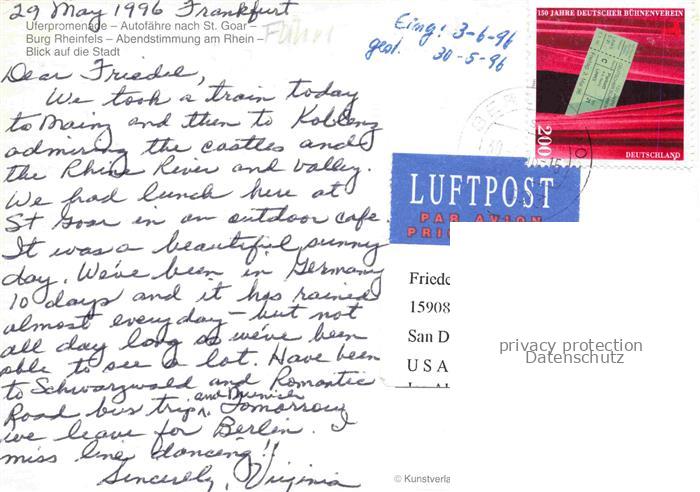 29 May 1996 Frankfurt
Uferpromenade – Autofähre nach St. Goar –
Burg Rheinfels – Abendstimmung am Rhein –
Blick auf die Stadt
Eing: 3-6-96
gest. 30-5-96
150 JAHRE DEUTSCHER BÜHNENVEREIN
200
DEUTSCHLAND
Dear Friedel,
We took a train today
to Mainz and then to Koblenz
admiring the castles and
the Rhine River and valley.
We had lunch here at
St Goar in an outdoor cafe.
It was a beautiful sunny
day. We've been in Germany
10 days and it has rained
almost everyday – but not
all day long so we've been
able to see a lot. Have been
to Schwarzwald and Romantic
Road bus trips, and Munich
Tomorrow
we leave for Berlin. I
miss line dancing!!
Sincerely, Virginia
LUFTPOST
PAR AVION
Friede
15908
San D
U S A
privacy protection
Datenschutz
© Kunstverla